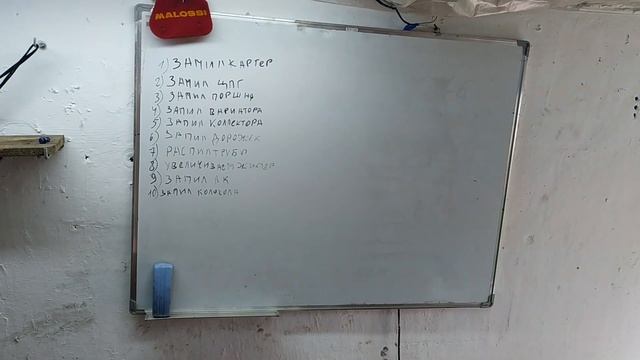 MALOSSI
1) ЗАПИЛ КАРТЕР
2) ЗАПИЛ ЦПГ
3) ЗАПИЛ ПОРШНЯ
4) ЗАПИЛ ВАРИАТОРА
5) ЗАПИЛ КОЛЛЕКТОРА
6) ЗАПИЛ ДОРОЖЕК
7) РАСПИЛ ТРУБЫ
8) УВЕЛИЧИВАЕМ
9) ЗАПИЛ ЛК
10) ЗАПИЛ КОЛОКОЛА